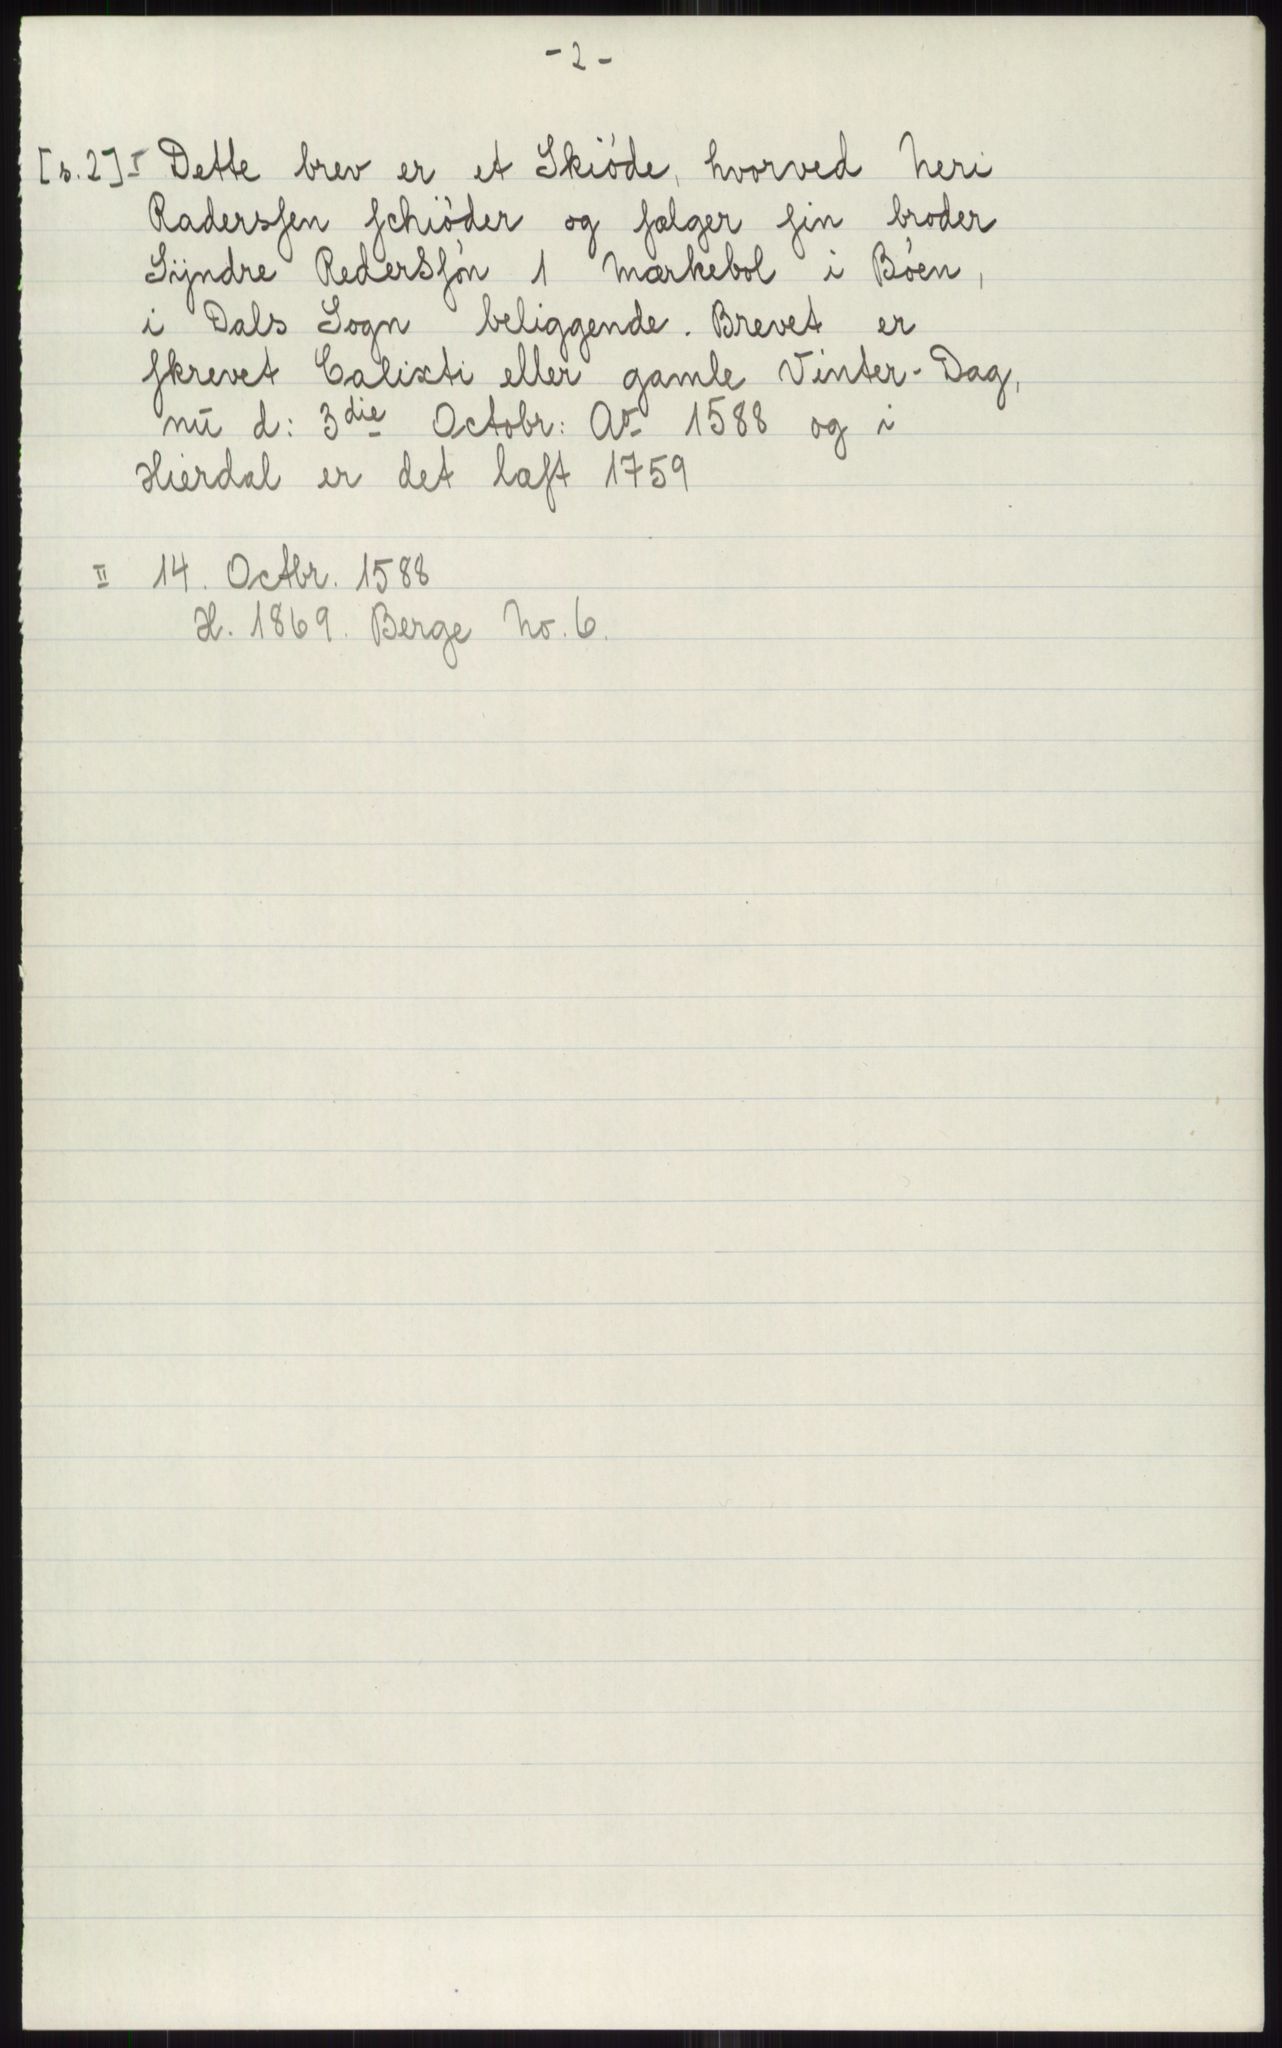 - 2 -
[s. 2] I Dette brev er et Skióde, hvorved Neri
Radersſen ſchióder og ſælger ſin broder
Sÿndre RederSſón 1 Markebol i Bóen,
i Dals Sogn beliggende. Brevet er
ſkrevet Calixti eller gamle Vinter-Dag,
nu d: 3die Octobr: Ao 1588 og i
Hierdal er det læſt 1759
II 14. Octbr. 1588
H. 1869. Berge No. 6.